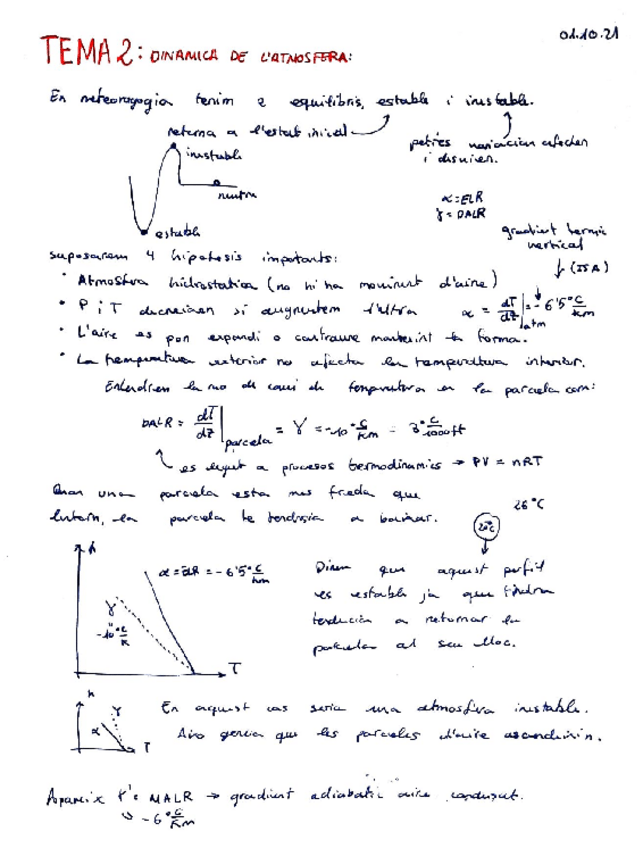 01.10.21
TEMA 2: DINAMICA DE L'ATMOSFERA:
En tenim 2 equilibris, estable i inestable.
retorna a l'estat inicial
petites afecten
i
inestable
neutre
estable
α = ELR
γ = DALR
gradient termic
vertical
(ISA)
suposarem 4 hipotesis importants:
· Atmosfera hidrostatica (no hi ha moviment d'aire)
· P i T decreixen si augmentem l'altura α = dT/dz|atm = -6'5 °C/km
· L'aire es pot expandi o contraure mantenint la forma.
· La temperatura exterior no afecta la temperatura interior.
la de de temperatura en la parcela com:
DALR = dT/dz|parcela = γ = -10 °C/km = 3 °C/1000ft
es degut a procesos termodinamics → PV = nRT
Quan una parcela esta mes freda que
l'entorn, la parcela te tendencia a baixar.
26°C
h
α = ELR = -6'5 °C/km
γ
"
-10 °C/K
T
Diem que aquest perfil
es estable ja que tindra
tendencia a retornar la
al seu lloc.
h
γ
α
T
En aquest cas seria una atmosfera inestable.
Aixo que les parceles d'aire
Apareix γ' = MALR → gradient adiabatic aire condensat.
-6 °C/Km